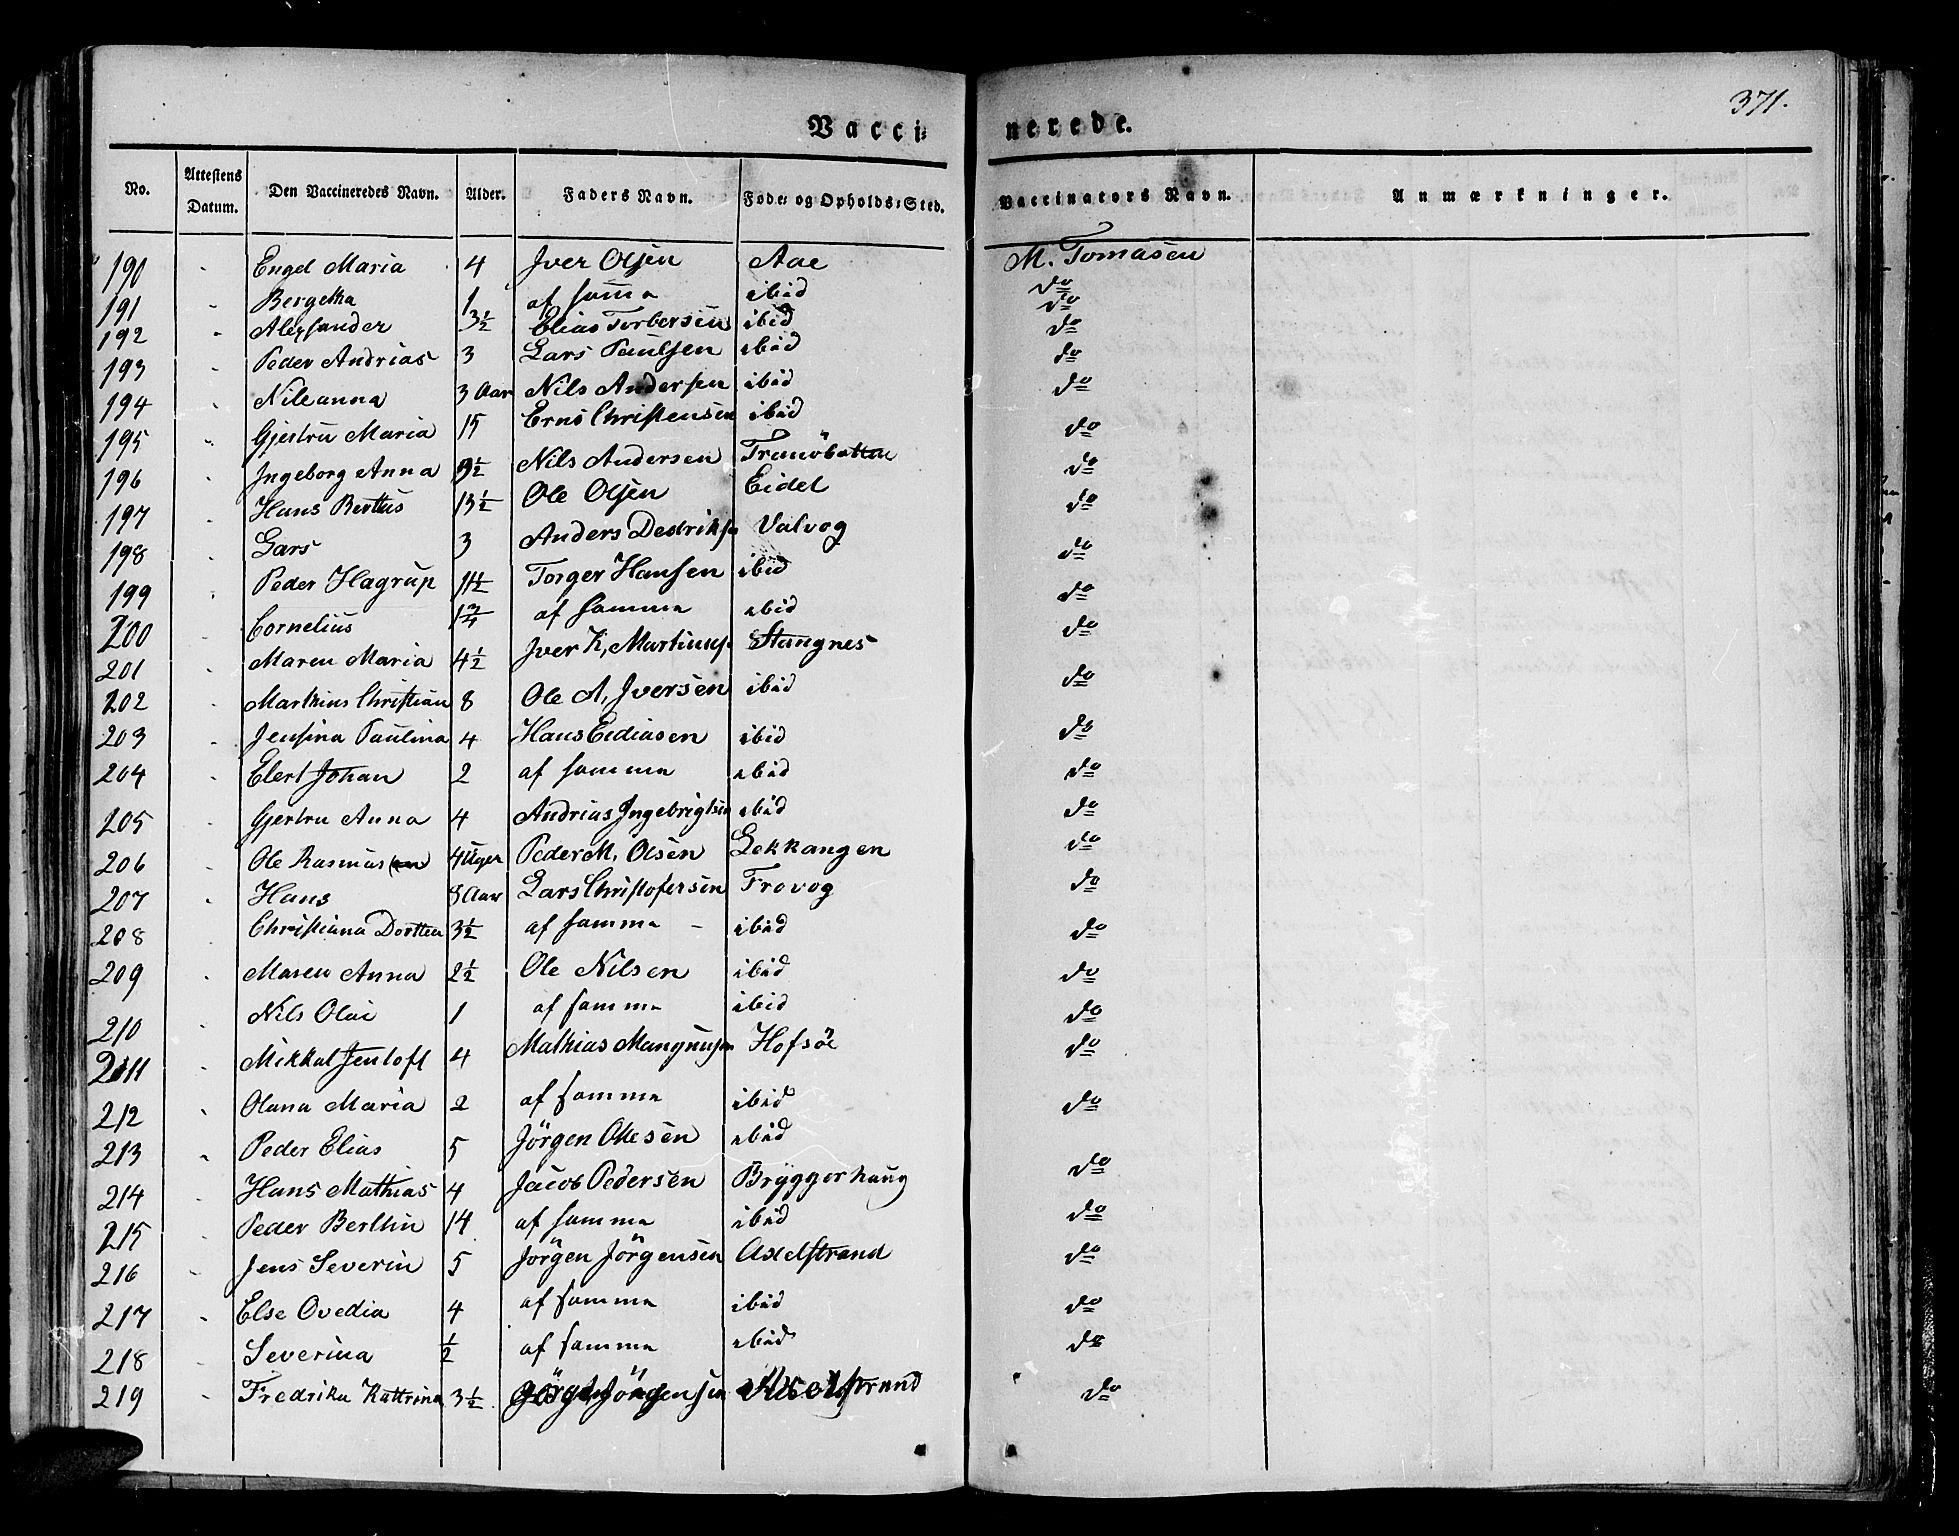 371.
Vacci= nerede.
No. Attestens Datum. Den Vaccineredes Navn. Alder. Faders Navn. Føde= og Opholds=Sted. Vaccinators Navn. Anmærkninger.
190 Engel Maria 4 Jver Olsen Aae M. Tomasen
191 Bergetha 1 af samma ibid do
192 Alexsander 3½ Elias Torbersen ibid do
193 Peder Andrias 3 Lars Paulsen ibid do
194 Nileanna 3 Aar Nils Andersen ibid do
195 Gjertru Maria 15 Erns Christensen ibid do
196 Ingeborg Anna 9½ Nils Andersen Tranöbotten do
197 Hans Berttus 13½ Ole Olsen Eidet do
198 Lars 3 Anders Dedriks Valvog do
199 Peder Hagrup 11½ Torger Hansen ibid do
200 Cornelius 1¾ af samma ibid do
201 Maren Maria 4½ Jver K, Martinus Stangnes do
202 Marthins Christian 8 Ole A, Jversen ibid do
203 Jensina Paulina 4 Hans Eediasen ibid do
204 Elert Johan 2 af samma ibid do
205 Gjertru Anna 4 Andrias Ingebrigtsen ibid do
206 Ole Rasmus 4 Uger Peder M, Olsen Lekkangen do
207 Hans 8 Aar Lars Christofersen Frovog do
208 Christiana Dorttea 3½ af samma ibid do
209 Maren Anna 2½ Ole Nilsen ibid do
210 Nils Olai 1 af samma ibid do
211 Mikkal Jentoft 4 Mathias Mangnusen Hofsöe do
212 Olana Maria 2 af samma ibid do
213 Peder Elias 5 Jörgen Olesen ibid
214 Hans Mathias 4 Jacob Pedersen Bryggerhaug do
215 Peder Berthin 14 af samma ibid do
216 Jens Severin 5 Jörgen Jörgensen Axelstrand do
217 Else Ovedia 4 af samma ibid do
218 Severina ½ af samma ibid do
219 Fredrika Kattrina 3½ Jörgen Jörgensen Axelstrand do